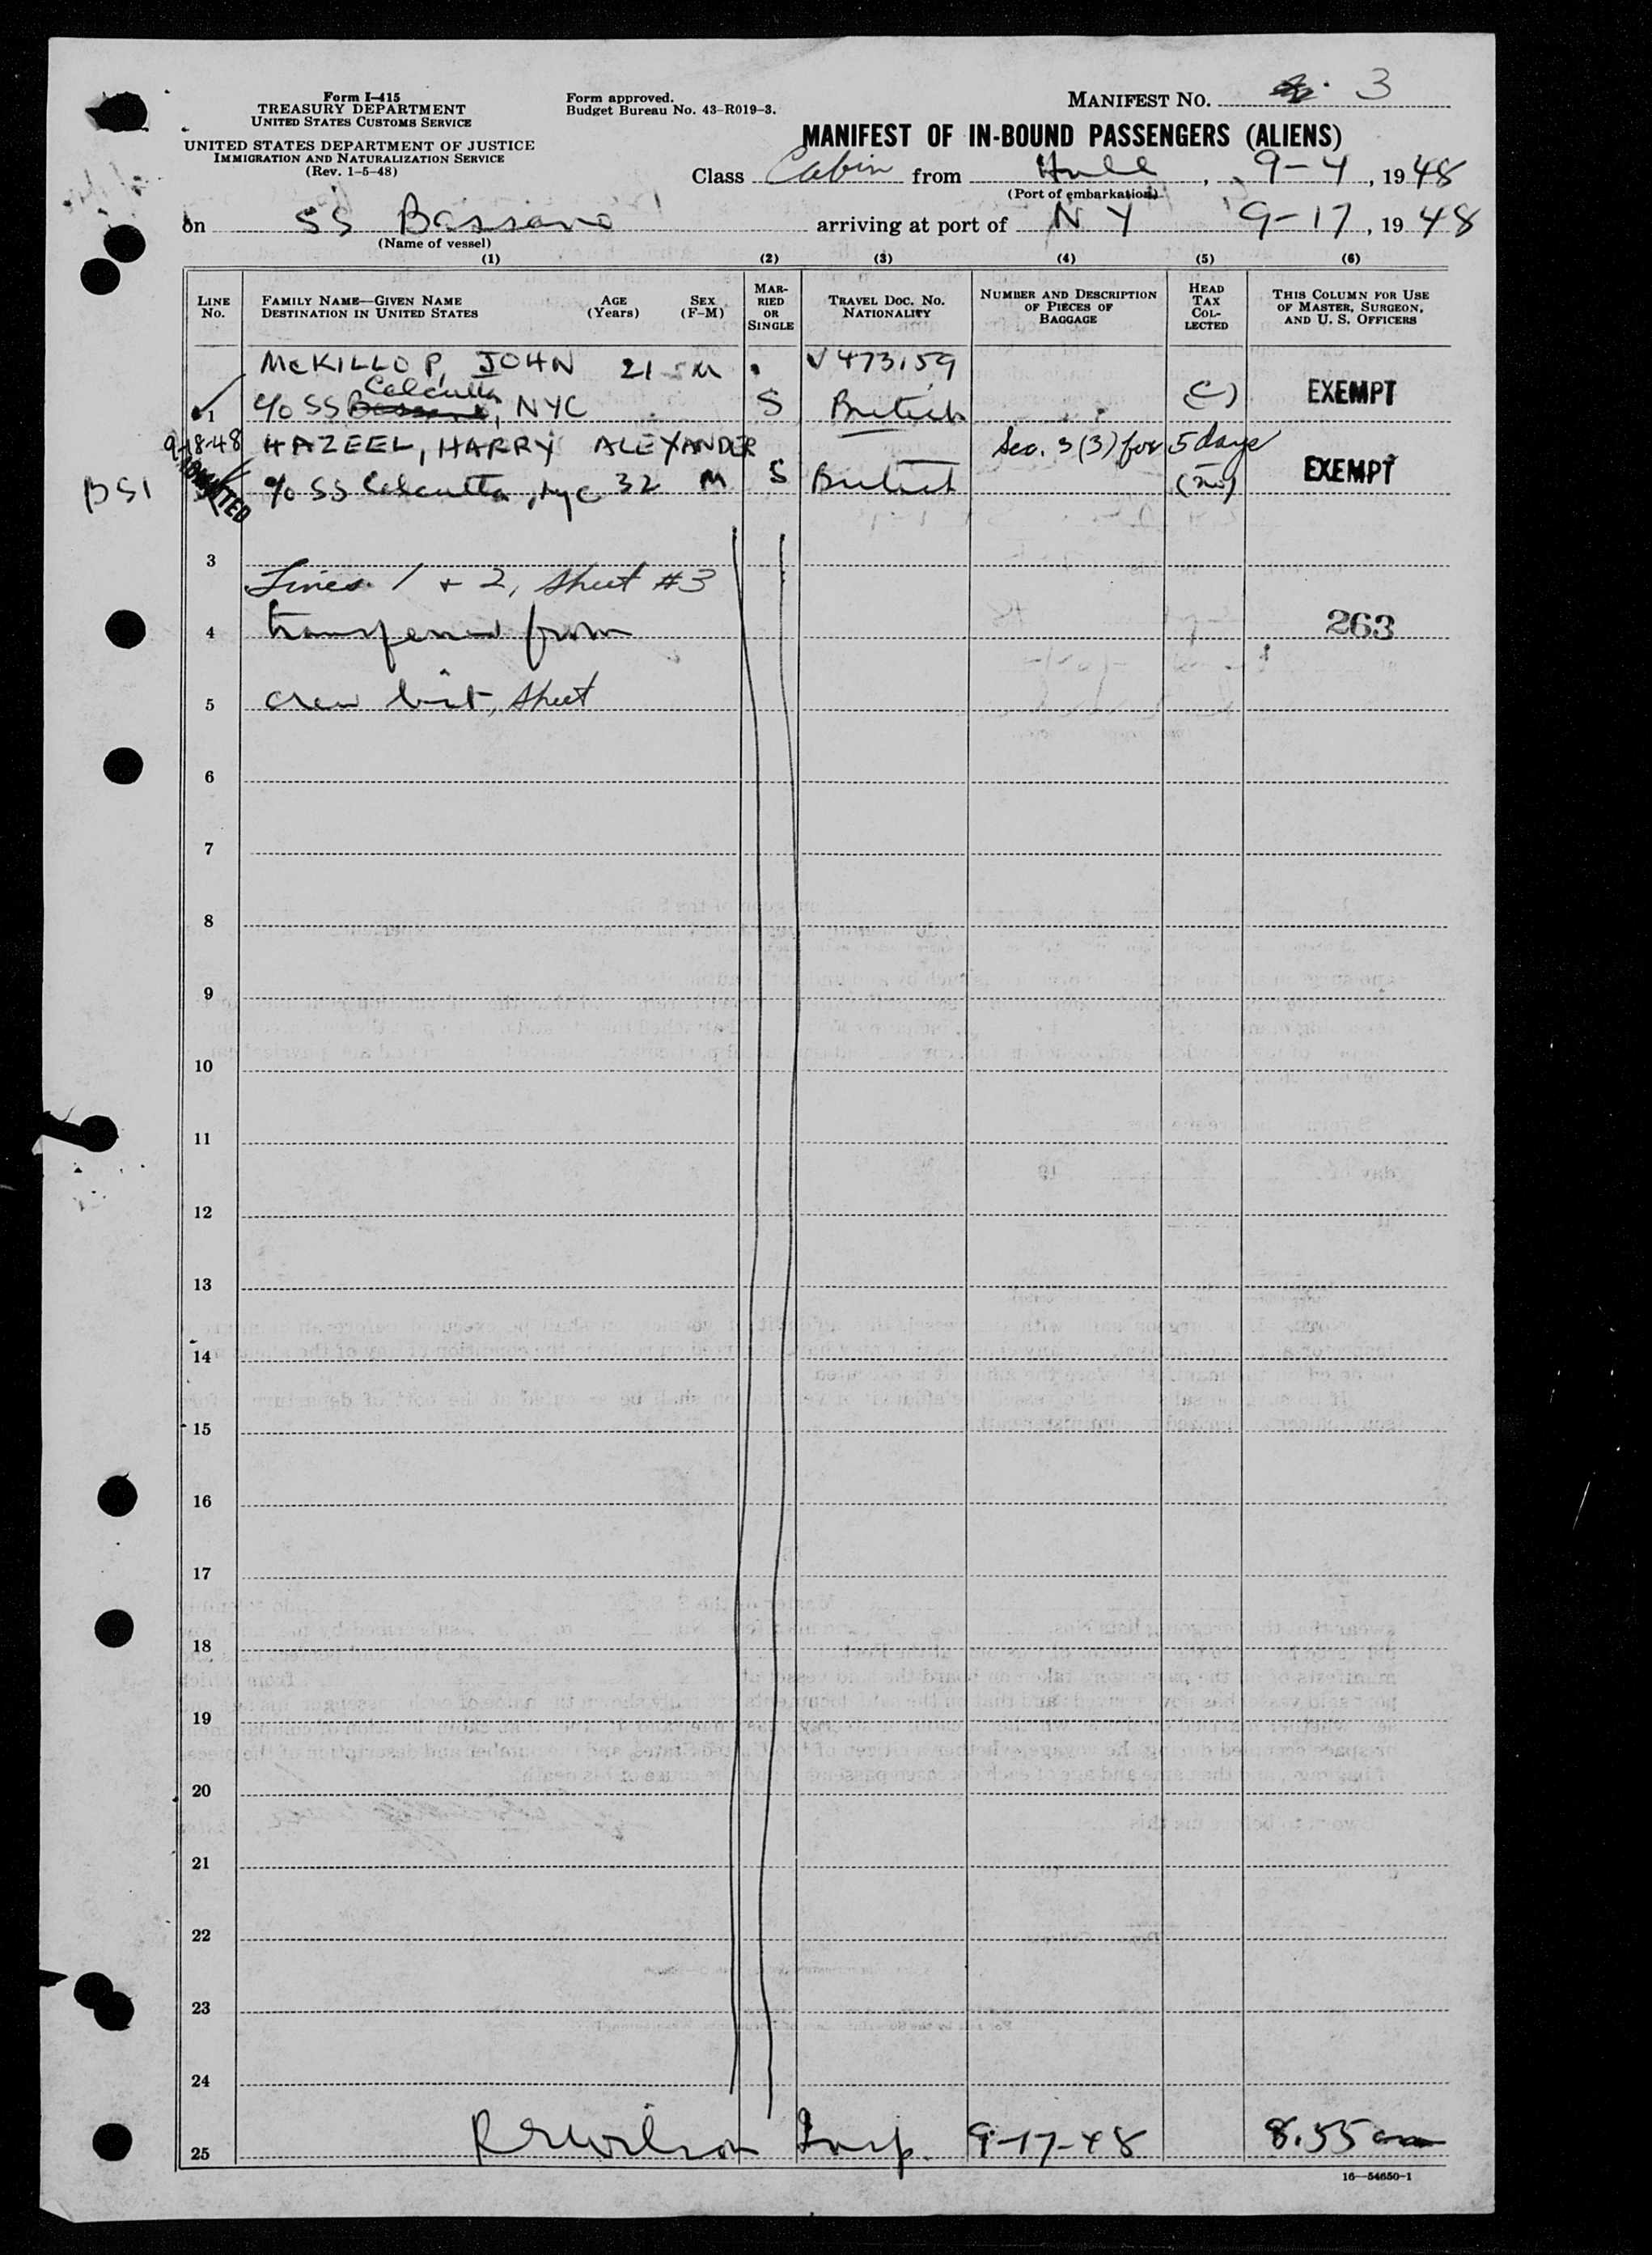 Form I-415
TREASURY DEPARTMENT
UNITED STATES CUSTOMS SERVICE
UNITED STATES DEPARTMENT OF JUSTICE
IMMIGRATION AND NATURALIZATION SERVICE
(Rev. 1-5-48)
Form approved.
Budget Bureau No. 43-R019-3.
MANIFEST NO. 3
MANIFEST OF IN-BOUND PASSENGERS (ALIENS)
Class Cabin from Hull, 9-4, 1948
(Port of embarkation)
on SS Bassano arriving at port of NY 9-17, 1948
(Name of vessel)
(1) (2) (3) (4) (5) (6)
LINE No. FAMILY NAME—GIVEN NAME DESTINATION IN UNITED STATES AGE (Years) SEX (F-M) MARRIED OR SINGLE TRAVEL DOC. NO. NATIONALITY NUMBER AND DESCRIPTION OF PIECES OF BAGGAGE HEAD TAX COLLECTED THIS COLUMN FOR USE OF MASTER, SURGEON, AND U. S. OFFICERS
McKILLOP, JOHN 21 M V473159
1 c/o SS Bassano Calcutta, NYC S British EXEMPT
9-18-48 HAZEEL, HARRY ALEXANDER Sec. 3(3) for 5 days
BSI ADMITTED c/o SS Calcutta, NYC 32 M S British EXEMPT
3
Lines 1 + 2, sheet #3
4 transferred from 263
5 crew list, sheet
6
7
8
9
10
11
12
13
14
15
16
17
18
19
20
21
22
23
24
25 R E Wilson Insp. 9-17-48 8.55 am
16—54650-1